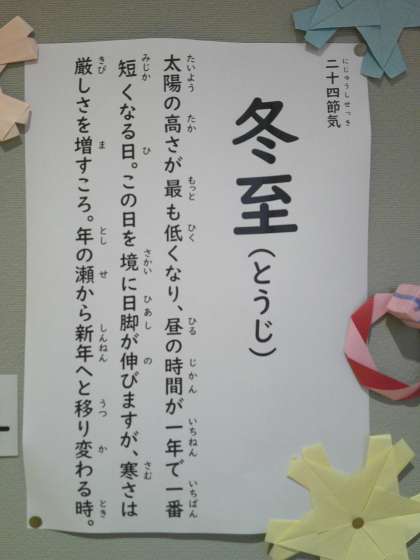 二十四節気
冬至(とうじ)
太陽の高さが最も低くなり、昼の時間が一年で一番
短くなる日。この日を境に日脚が伸びますが、寒さは
厳しさを増すころ。年の瀬から新年へと移り変わる時。